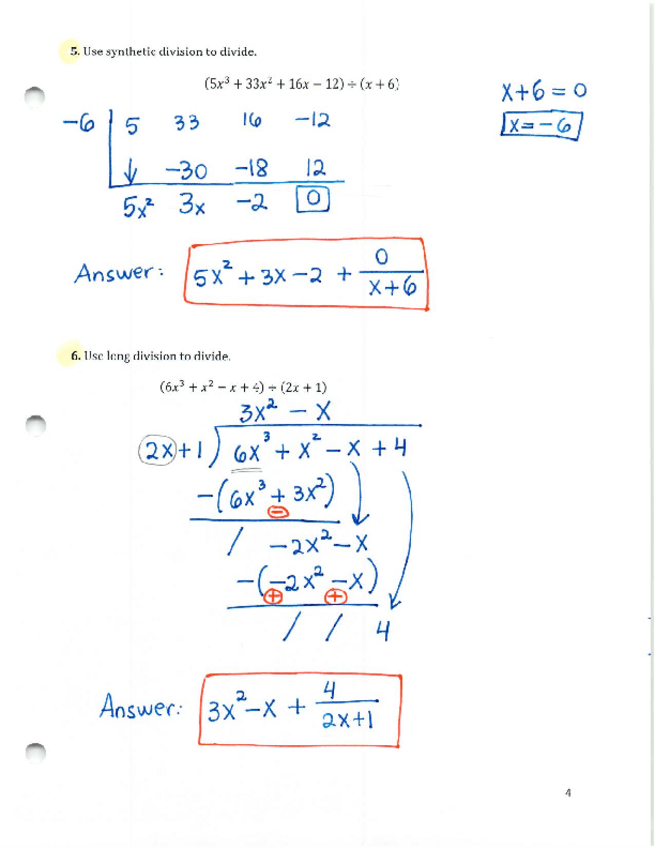 5. Use synthetic division to divide.
(5x³ + 33x² + 16x − 12) ÷ (x + 6)
x+6 = 0
x = −6
−6 | 5 33 16 −12
↓ −30 −18 12
5x² 3x −2 0
Answer: 5x² + 3x − 2 + 0/(x+6)
6. Use long division to divide.
(6x³ + x² − x + 4) ÷ (2x + 1)
3x² − x
2x+1 ) 6x³ + x² − x + 4
−(6x³ + 3x²)
−
/ −2x² − x
−(−2x² − x)
+ +
/ / 4
Answer: 3x² − x + 4/(2x+1)
4